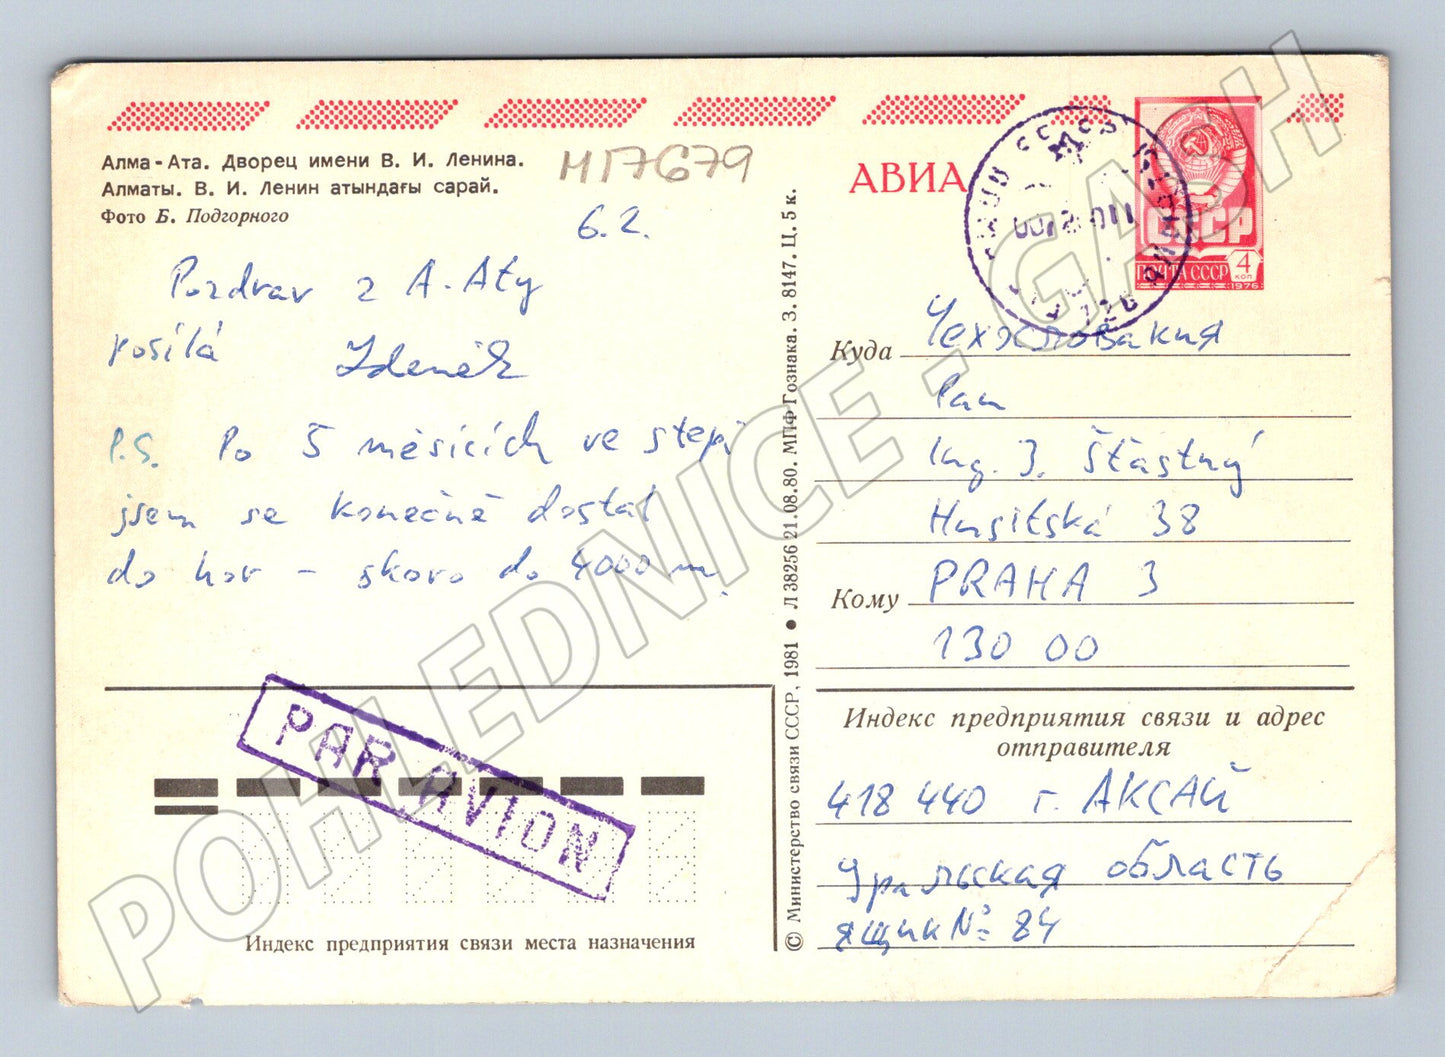 Алма-Ата. Дворец имени В. И. Ленина.
Алматы. В. И. Ленин атындағы сарай.
Фото Б. Подгорного
M17679
6. 2.
Pozdrav z A-Aty
posílá Zdeněk
P.S. Po 5 měsících ve stepi
jsem se konečně dostal
do hor – skoro do 4000 m.
PAR AVION
Индекс предприятия связи места назначения
© Министерство связи СССР, 1981 ● Л 38256 21.08.80. МПФ Гознака. З. 8147. Ц. 5 к.
АВИА
СССР
ПОЧТА СССР
4
КОП
1976
Куда
Чехословакия
Pan
Ing. J. Šťastný
Husitská 38
Кому
PRAHA 3
130 00
Индекс предприятия связи и адрес
отправителя
418 440 г. АКСАЙ
Уральская область
ящик № 84
POHLEDNICE - GASH